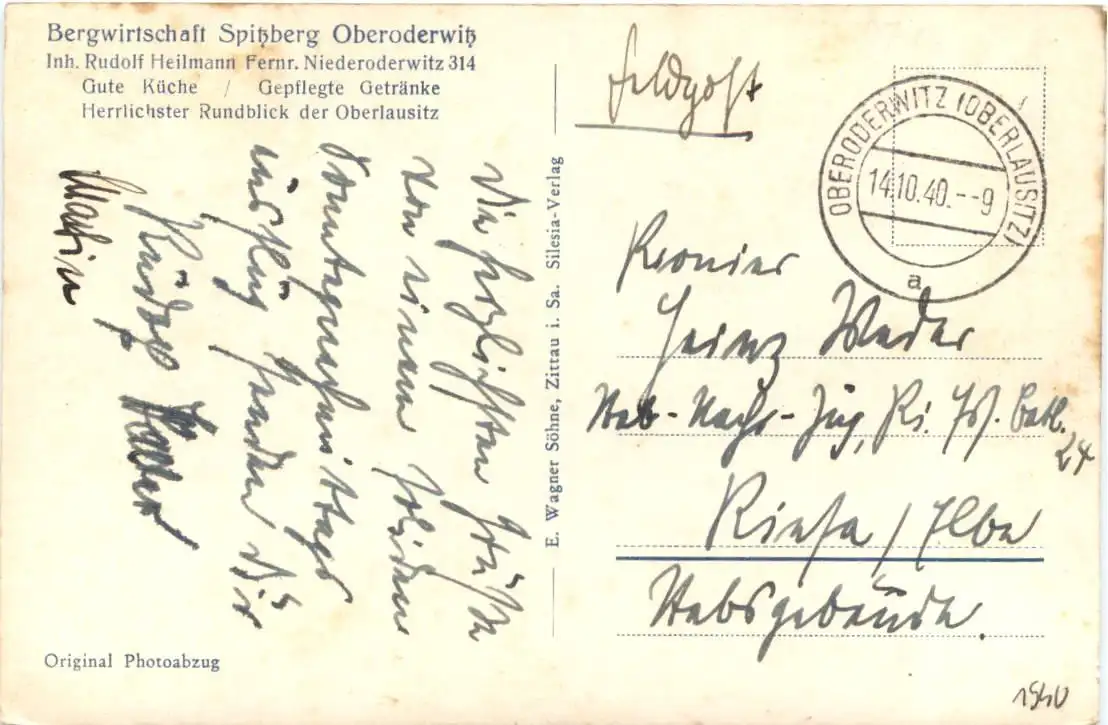 Bergwirtschaft Spitzberg Oberoderwitz
Inh. Rudolf Heilmann Fernr. Niederoderwitz 314
Gute Küche / Gepflegte Getränke
Herrlichster Rundblick der Oberlausitz
Die herzlichsten Grüße
von einem schönen
Sonntagnachmittags
ausflug senden Dir
Martin
Original Photoabzug
E. Wagner Söhne, Zittau i. Sa. Silesia-Verlag
Feldpost
OBERODERWITZ (OBERLAUSITZ)
14.10.40.--9
a
Pionier
Heinz Weder
Stab-Nachr-Zug, Pi. Batl.
24
Riesa / Elbe
Stabsgebäude.
1940